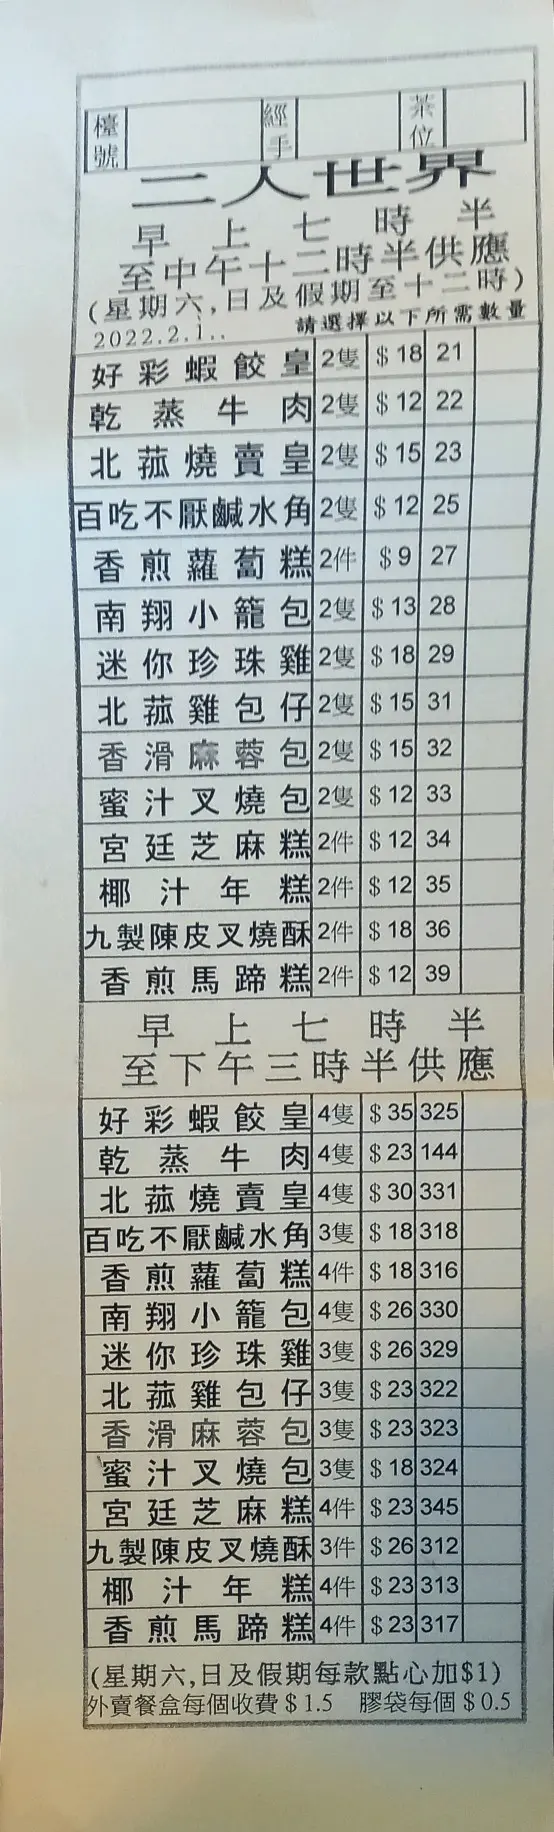 檯號 經手 茶位
二人世界
早上七時半
至中午十二時半供應
(星期六,日及假期至十二時)
2022.2.1.. 請選擇以下所需數量
好彩蝦餃皇 2隻 $18 21
乾蒸牛肉 2隻 $12 22
北菰燒賣皇 2隻 $15 23
百吃不厭鹹水角 2隻 $12 25
香煎蘿蔔糕 2件 $9 27
南翔小籠包 2隻 $13 28
迷你珍珠雞 2隻 $18 29
北菰雞包仔 2隻 $15 31
香滑麻蓉包 2隻 $15 32
蜜汁叉燒包 2隻 $12 33
宮廷芝麻糕 2件 $12 34
椰汁年糕 2件 $12 35
九製陳皮叉燒酥 2件 $18 36
香煎馬蹄糕 2件 $12 39
早上七時半
至下午三時半供應
好彩蝦餃皇 4隻 $35 325
乾蒸牛肉 4隻 $23 144
北菰燒賣皇 4隻 $30 331
百吃不厭鹹水角 3隻 $18 318
香煎蘿蔔糕 4件 $18 316
南翔小籠包 4隻 $26 330
迷你珍珠雞 3隻 $26 329
北菰雞包仔 3隻 $23 322
香滑麻蓉包 3隻 $23 323
蜜汁叉燒包 3隻 $18 324
宮廷芝麻糕 4件 $23 345
九製陳皮叉燒酥 3件 $26 312
椰汁年糕 4件 $23 313
香煎馬蹄糕 4件 $23 317
(星期六,日及假期每款點心加$1)
外賣餐盒每個收費$1.5 膠袋每個$0.5